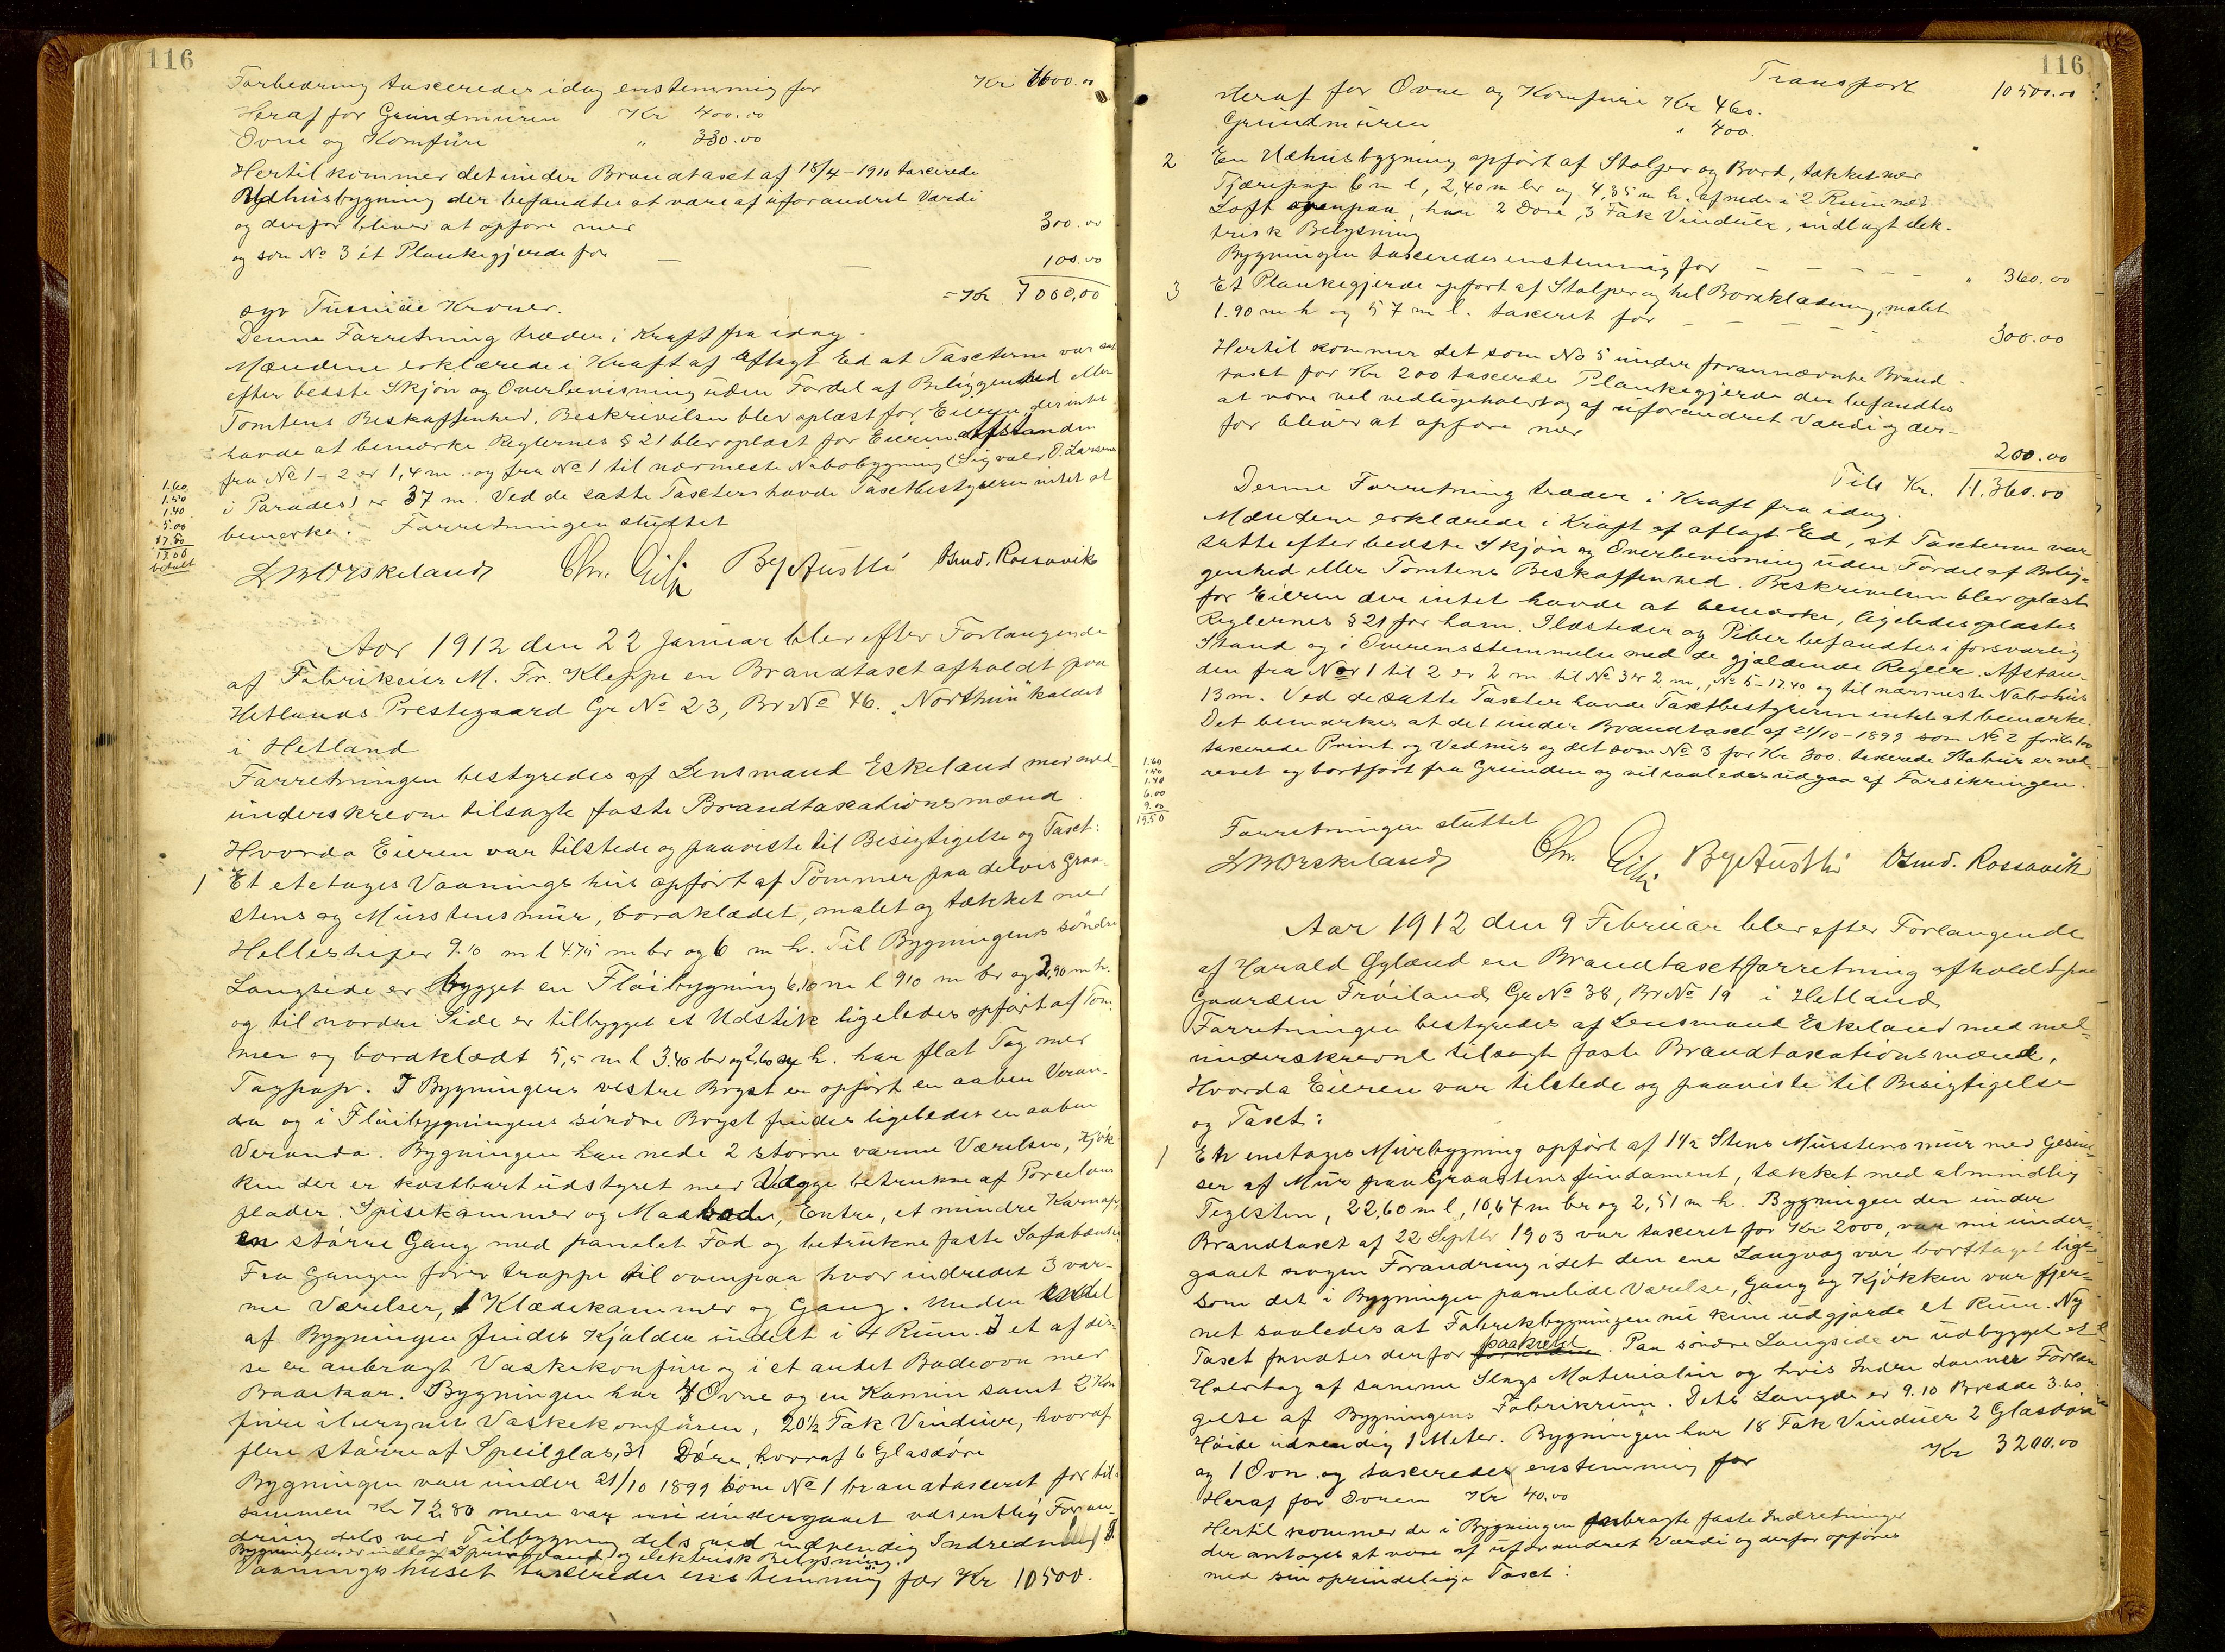 116
Forbedring taxeredes idag enstemmig for Kr 6600.00
Heraf for Grundmuren Kr 400.00
Ovne og Komfure " 330.00
Hertil kommer det under Brandtaxt af 18/4-1910 taxerede
Udhusbygning der befandtes at være af uforandret Værdi
og derfor bliver at opføre med 300.00
og som No 3 et Plankegjerde for — — 100.00
= Kr 7000,00
syv Tusinde Kroner.
Denne Forretning træder i Kraft fra idag
Mændene erklærede i Kraft af aflagt Ed at Taxterne var sat
efter bedste Skjøn og Overbevisning uden Fordel af Beliggenhed eller
Tomtens Beskaffenhed. Beskrivelsen blev oplæst for Eieren der intet
havde at bemærke. Reglernes § 21 blev oplæst for Eieren. Afstanden
fra No 1-2 er 1,4 m. og fra No 1 til nærmeste Nabobygning (Sigvald O. Larsens
i Paradis) er 37 m. Ved de satte Taxter havde Taxtbestyreren intet at
bemærke. Forretningen sluttet
1.60
1.50
1.40
5.00
17.00
betalt
Chr. Eilje Osmd. Rossavik
Aar 1912 den 22 Januar blev efter Forlangende
af Fabrikeier M. Fr. Kleppe en Brandtaxt afholdt paa
Hetlands Prestegaard Gr No 23, Br No 46. "Northun" kaldet
i Hetland
Forretningen bestyredes af Lensmand Eskeland med ned-
underskrevne tilsagte faste Brandtaxationsmænd
Hvorda Eieren var tilstede og paaviste til Besigtigelse og Taxt:
1 Et etetages Vaaningshus opført af Tømmer paa delvis Graa-
stens og Murstensmur, bordklædet, malet og tækket med
Helleskifer 9.10 m l 4.75 m br og 6 m h. Til Bygningens søndre
Langside er bygget en Fløibygning 6,10 m l 9,10 m br og 3,90 m h.
og til nordre Side er tilbygget et Udstik ligeledes opført af Tøm-
mer og bordklædt 5,5 m l 3.40 br og 2.60 m h. har flat Tag med
Tagpap. I Bygningens vestre Bryst er opført en aaben Veran-
da og i Fløibygningens søndre Bryst findes ligeledes en aaben
Veranda. Bygningen har nede 2 større varme Værelser, Kjøk-
ken der er kostbart udstyret med Vægge betrukne af Porcelæns
plader. Spisekammer og Madbod, Entre, et mindre Karnap,
en større Gang med panelet Fod og betrukne faste Sofabænke
Fra Gangen fører trappe til ovenpaa hvor indredet 3 var-
me Værelser, 1 Klædekammer og Gang. Under endel
af Bygningen findes Kjælder indelt i 4 Rum. I et af dis-
se er anbragt Vaskekomfur og i et andet Badeovn med
Badekar. Bygningen har 7 Ovne og en Kamin samt 2 Kom
fure iberegnet Vaskekomfuren, 20 1/2 Fak Vinduer, hvoraf
flere større af Speilglas, 31 Døre, hvoraf 6 Glasdøre
Bygningen var under 21/10 1899 som No 1 brandtaxeret for til-
sammen Kr 7280 men var nu undergaaet væsentlig Foran-
dring dels ved Tilbygning dels ved indvendig Indredning
Bygningen er indlagt Springvand og elektrisk Belysning.
Vaaningshuset taxeredes enstemmig for Kr 10500.
116
Transport 10500.00
Heraf for Ovne og Komfure Kr 460.
Grundmuren " 400.
2 En Udhusbygning opført af Stolper og Bord, tækket med
Tjærepap 6 m l, 2,40 m br og 4,35 m h. afnede i 2 Rum med
Loft ovenpaa, har 2 Døre, 3 Fak Vinduer, indlagt elek-
trisk Belysning
Bygningen taxeredes enstemmig for — — — — — " 360.00
3 Et Plankegjerde opført af Stolper og hel Bordklædning, malet
1.90 m h og 57 m l. taxeret for — — — — — 300.00
Hertil kommer det som No 5 under forannævnte Brand-
taxt for Kr 200 taxerede Plankegjerde der befandtes
at være vel vedligeholdt og af uforandret Værdi og der-
for bliver at opføre med 200.00
Tils Kr. 11.360.00
Denne Forretning træder i Kraft fra idag.
Mændene erklærede i Kraft af aflagt Ed, at Taxterne var
satte efter bedste Skjøn og Overbevisning uden Fordel af Belig-
genhed eller Tomtens Beskaffenhed. Beskrivelsen blev oplæst
for Eieren der intet havde at bemærke, ligeledes oplæstes
Reglernes § 21 for ham. Ildsteder og Piber befandtes i forsvarlig
Stand og i Overensstemmelse med de gjældende Regler. Afstan-
den fra No 1 til 2 er 2 m til No 3 er 2 m., No 5 - 17.40 og til nærmeste Nabohus
13 m. Ved de satte Taxter havde Taxtbestyreren intet at bemærke.
Det bemærkes at det under Brandtaxt af 21/10-1899 som No 2 for Kr 100
taxerede Privet og Vedhus og det som No 3 for Kr 300. taxerede Stabur er ned-
revet og bortført fra Grunden og vil saaledes udgaa af Forsikringen.
1.60
1.50
1.40
6.00
9.00
19.50
Forretningen sluttet
Chr. Eilje Osmd. Rossavik
Aar 1912 den 9 Februar blev efter Forlangende
af Harald Oglænd en Brandtaxtforretning afholdt paa
Gaarden Frøiland Gr No 38, Br No 19 i Hetland
Forretningen bestyredes af Lensmand Eskeland med ned-
underskrevne tilsagte faste Brandtaxationsmænd,
Hvorda Eieren var tilstede og paaviste til Besigtigelse
og Taxt:
1 En enetages Murbygning opført af 1 1/2 Stens Murstensmur med Gesim-
ser af Mur paa Graastensfundament, tækket med almindlig
Teglsten, 22,60 m l, 10,67 m br og 2,51 m h. Bygningen der under
Brandtaxt af 22 Septbr 1903 var taxeret for Kr 2000, var nu under-
gaaet nogen Forandring idet den ene Langvæg var borttaget lige-
som det i Bygningen panelede Værelse, Gang og Kjøkken var fjer-
net saaledes at Fabrikbygningen nu kun udgjorde et Rum. Ny
Taxt fandtes derfor paakrævet. Paa søndre Langside er udbygget et
Halvtag af samme Slags Materialier og hvis Indre danner Forlæn
gelse af Bygningens Fabrikrum. Dets Længde er 9.10 Bredde 3.60
Høide udvendig 1 Meter. Bygningen har 18 Fak Vinduer 2 Glasdøre
og 1 Ovn og taxeredes enstemmig for Kr 3200.00
Heraf for Ovnen Kr 40.00
Hertil kommer de i Bygningen anbragte faste Indretninger
der antages at være af uforandret Værdi og derfor opføres
med sin oprindelige Taxt: